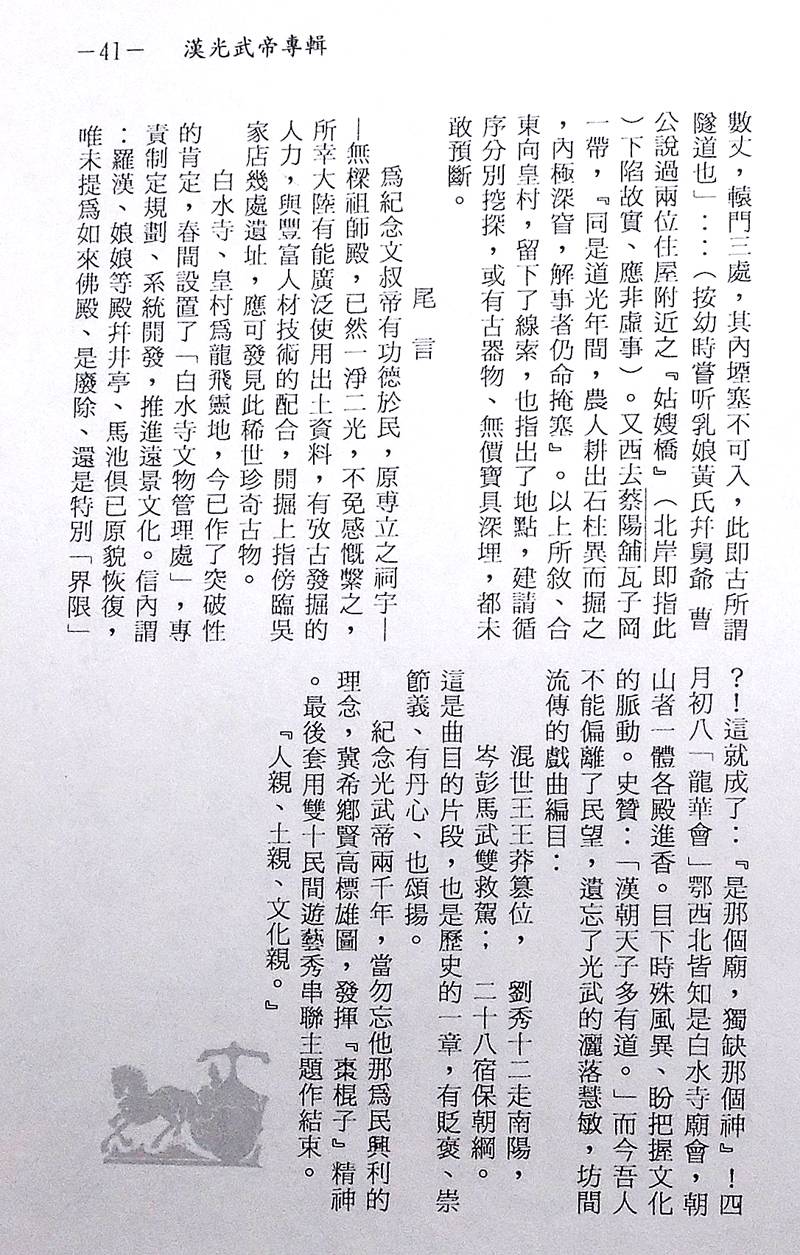 —41—　漢光武帝專輯
數丈，轅門三處，其內堙塞不可入，此即古所謂
隧道也」：：（按幼時嘗听乳娘黃氏幷舅爺 曹
公說過兩位住屋附近之『姑嫂橋』（北岸即指此
）下陷故實、應非虛事）。又西去蔡陽舖瓦子岡
一帶，『同是道光年間，農人耕出石柱異而掘之
，內極深窅，解事者仍命掩塞』。以上所敘、合
東向皇村，留下了線索，也指出了地點，建請循
序分別挖探，或有古器物、無價寶具深埋，都未
敢預斷。
尾言
爲紀念文叔帝有功德於民，原専立之祠宇—
—無樑祖師殿，已然一淨二光，不免感慨繫之，
所幸大陸有能廣泛使用出土資料，有攷古發掘的
人力，與豐富人材技術的配合，開掘上指傍臨吳
家店幾處遺址，應可發見此稀世珍奇古物。
白水寺、皇村爲龍飛靈地，今已作了突破性
的肯定，春間設置了「白水寺文物管理處」，專
責制定規劃、系統開發，推進遠景文化。信內謂
：羅漢、娘娘等殿幷井亭、馬池俱已原貌恢復，
唯未提爲如來佛殿、是廢除、還是特別「界限」
？！這就成了：『是那個廟，獨缺那個神』！四
月初八「龍華會」鄂西北皆知是白水寺廟會，朝
山者一體各殿進香。目下時殊風異、盼把握文化
的脈動。史贊：「漢朝天子多有道。」而今吾人
不能偏離了民望，遺忘了光武的灑落慧敏，坊間
流傳的戲曲編目：
混世王王莽篡位，　劉秀十二走南陽，
岑彭馬武雙救駕；　二十八宿保朝綱。
這是曲目的片段，也是歷史的一章，有貶褒、崇
節義、有丹心、也頌揚。
紀念光武帝兩千年，當勿忘他那爲民興利的
理念，冀希鄉賢高標雄圖，發揮『棗棍子』精神
。最後套用雙十民間遊藝秀串聯主題作結束。
『人親、土親、文化親。』